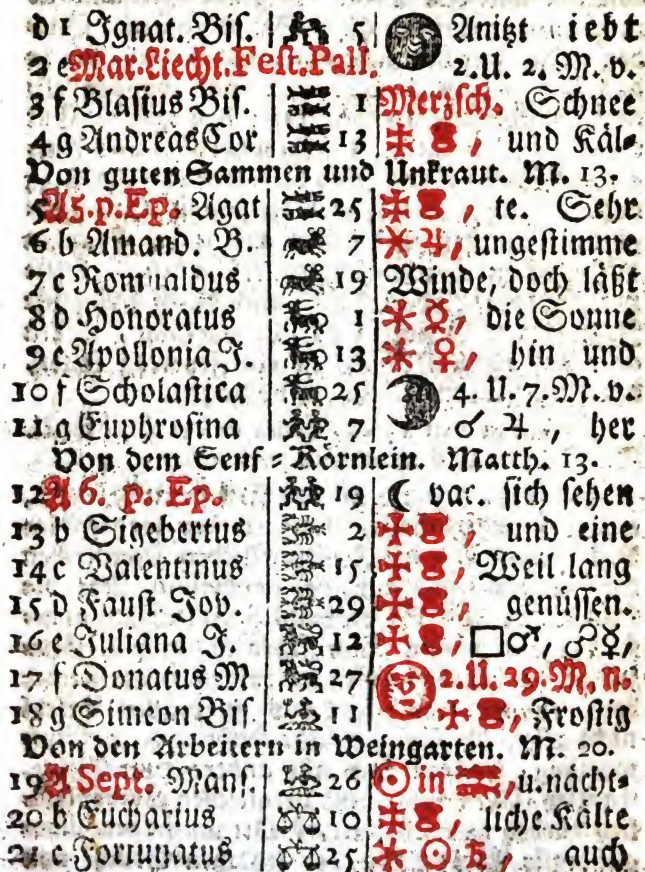 d 1 Ignat. Bis. 5 Anitzt iebt
2 e Mar. Liecht. Fest. Pall. 2. U. 2. M. v.
3 f Blasius Bis. 1 Merzsch. Schnee
4 g Andreas Cor 13 und Käl-
Von guten Sammen und Unkraut. M. 13.
5 A 5. p. Ep. Agat 25 te. Sehr
6 b Amand. B. 7 ⚹ ♃, ungestimme
7 c Romualdus 19 Winde, doch läßt
8 d Honoratus 1 ⚹ ☿, die Sonne
9 e Apollonia J. 13 ⚹ ♀, hin und
10 f Scholastica 25 4. U. 7. M. v.
11 g Euphrosina 7 ☌ ♃, her
Von dem Senf = Körnlein. Matth. 13.
12 A 6. p. Ep. 19 ☾ vac. sich sehen
13 b Sigebertus 2 und eine
14 c Valentinus 15 Weil lang
15 d Faust. Jov. 29 genüssen.
16 e Juliana J. 12 □♂, ☍☿,
17 f Donatus M 27 2. U. 29. M. n.
18 g Simeon Bis. 11 Frostig
Von den Arbeitern in Weingarten. M. 20.
19 A Sept. Mans. 26 ☉ in ♒, u. nächt-
20 b Eucharius 10 liche Kälte
21 c Fortunatus 25 ⚹ ☉ ♄, auch